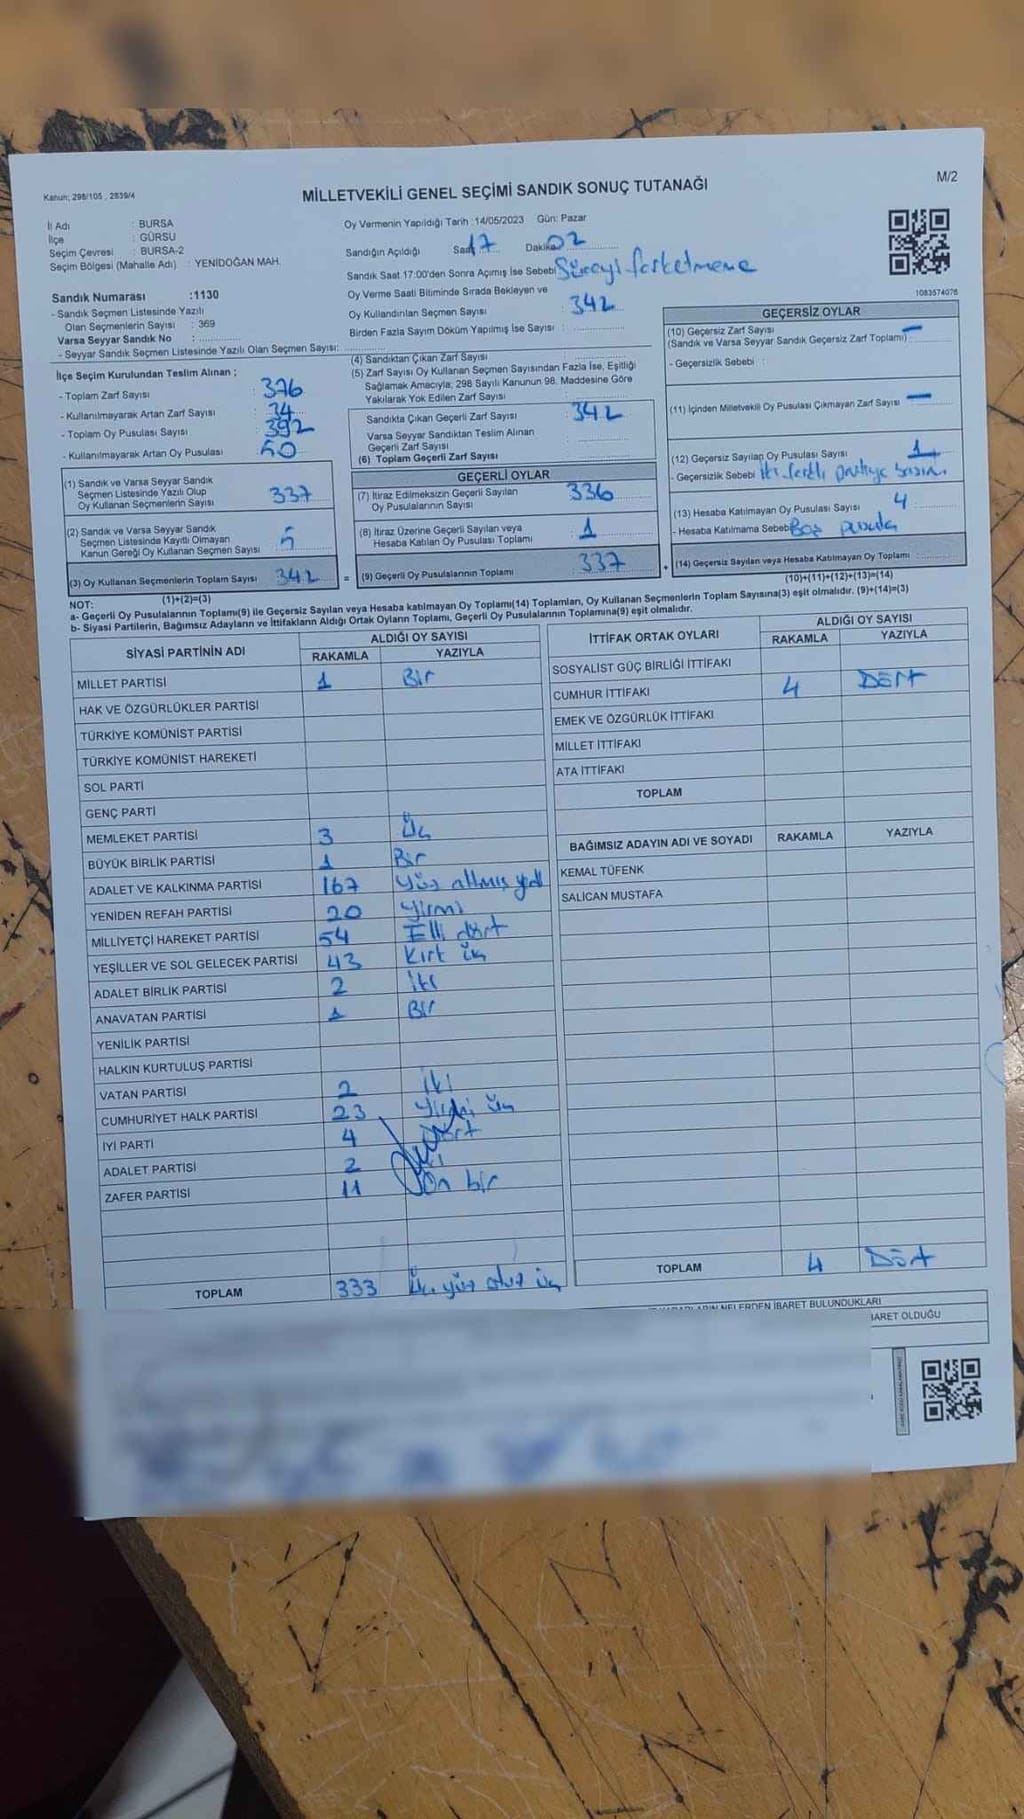 Kanun; 298/105 , 2839/4
MİLLETVEKİLİ GENEL SEÇİMİ SANDIK SONUÇ TUTANAĞI
M/2
İl Adı : BURSA
İlçe : GÜRSU
Seçim Çevresi : BURSA-2
Seçim Bölgesi (Mahalle Adı) : YENİDOĞAN MAH.
Oy Vermenin Yapıldığı Tarih :14/05/2023 Gün: Pazar
Sandığın Açıldığı Saat 17 Dakika 02
Sandık Saat 17:00'den Sonra Açımış İse Sebebi Süreyi farketmeme
Oy Verme Saati Bitiminde Sırada Bekleyen ve
Oy Kullandırılan Seçmen Sayısı : 342
Birden Fazla Sayım Döküm Yapılmış İse Sayısı :
1083574076
Sandık Numarası :1130
- Sandık Seçmen Listesinde Yazılı
Olan Seçmenlerin Sayısı : 369
Varsa Seyyar Sandık No :
- Seyyar Sandık Seçmen Listesinde Yazılı Olan Seçmen Sayısı:
İlçe Seçim Kurulundan Teslim Alınan ;
- Toplam Zarf Sayısı : 376
- Kullanılmayarak Artan Zarf Sayısı : 34
- Toplam Oy Pusulası Sayısı : 392
- Kullanılmayarak Artan Oy Pusulası : 50
(1) Sandık ve Varsa Seyyar Sandık
Seçmen Listesinde Yazılı Olup
Oy Kullanan Seçmenlerin Sayısı : 337
(2) Sandık ve Varsa Seyyar Sandık
Seçmen Listesinde Kayıtlı Olmayan
Kanun Gereği Oy Kullanan Seçmen Sayısı : 5
(3) Oy Kullanan Seçmenlerin Toplam Sayısı : 342
(1)+(2)=(3)
(4) Sandıktan Çıkan Zarf Sayısı :
(5) Zarf Sayısı Oy Kullanan Seçmen Sayısından Fazla İse, Eşitliği
Sağlamak Amacıyla; 298 Sayılı Kanunun 98. Maddesine Göre
Yakılarak Yok Edilen Zarf Sayısı :
Sandıkta Çıkan Geçerli Zarf Sayısı : 342
Varsa Seyyar Sandıktan Teslim Alınan
Geçerli Zarf Sayısı :
(6) Toplam Geçerli Zarf Sayısı :
GEÇERLİ OYLAR
(7) İtiraz Edilmeksizin Geçerli Sayılan
Oy Pusulalarının Sayısı : 336
(8) İtiraz Üzerine Geçerli Sayılan veya
Hesaba Katılan Oy Pusulası Toplamı : 1
= (9) Geçerli Oy Pusulalarının Toplamı : 337
GEÇERSİZ OYLAR
(10) Geçersiz Zarf Sayısı
(Sandık ve Varsa Seyyar Sandık Geçersiz Zarf Toplamı) : –
- Geçersizlik Sebebi :
(11) İçinden Milletvekili Oy Pusulası Çıkmayan Zarf Sayısı : –
(12) Geçersiz Sayılan Oy Pusulası Sayısı : 1
- Geçersizlik Sebebi : İki farklı partiye basım
(13) Hesaba Katılmayan Oy Pusulası Sayısı : 4
- Hesaba Katılmama Sebebi : Boş pusula
+ (14) Geçersiz Sayılan veya Hesaba Katılmayan Oy Toplamı :
(10)+(11)+(12)+(13)=(14)
NOT:
a- Geçerli Oy Pusulalarının Toplamı(9) ile Geçersiz Sayılan veya Hesaba katılmayan Oy Toplamı(14) Toplamları, Oy Kullanan Seçmenlerin Toplam Sayısına(3) eşit olmalıdır. (9)+(14)=(3)
b- Siyasi Partilerin, Bağımsız Adayların ve İttifakların Aldığı Ortak Oyların Toplamı, Geçerli Oy Pusulalarının Toplamına(9) eşit olmalıdır.
SİYASİ PARTİNİN ADI ALDIĞI OY SAYISI
RAKAMLA YAZIYLA
MİLLET PARTİSİ 1 Bir
HAK VE ÖZGÜRLÜKLER PARTİSİ
TÜRKİYE KOMÜNİST PARTİSİ
TÜRKİYE KOMÜNİST HAREKETİ
SOL PARTİ
GENÇ PARTİ
MEMLEKET PARTİSİ 3 Üç
BÜYÜK BİRLİK PARTİSİ 1 Bir
ADALET VE KALKINMA PARTİSİ 167 Yüz altmış yedi
YENİDEN REFAH PARTİSİ 20 Yirmi
MİLLİYETÇİ HAREKET PARTİSİ 54 Elli dört
YEŞİLLER VE SOL GELECEK PARTİSİ 43 Kırk üç
ADALET BİRLİK PARTİSİ 2 İki
ANAVATAN PARTİSİ 1 Bir
YENİLİK PARTİSİ
HALKIN KURTULUŞ PARTİSİ
VATAN PARTİSİ 2 İki
CUMHURİYET HALK PARTİSİ 23 Yirmi üç
İYİ PARTİ 4 Dört
ADALET PARTİSİ 2
ZAFER PARTİSİ 11 On bir
TOPLAM 333 Üç yüz otuz üç
İTTİFAK ORTAK OYLARI ALDIĞI OY SAYISI
RAKAMLA YAZIYLA
SOSYALİST GÜÇ BİRLİĞİ İTTİFAKI
CUMHUR İTTİFAKI 4 Dört
EMEK VE ÖZGÜRLÜK İTTİFAKI
MİLLET İTTİFAKI
ATA İTTİFAKI
TOPLAM
BAĞIMSIZ ADAYIN ADI VE SOYADI RAKAMLA YAZIYLA
KEMAL TÜFENK
SALİCAN MUSTAFA
TOPLAM 4 Dört
NELERDEN İBARET BULUNDUKLARI
İBARET OLDUĞU